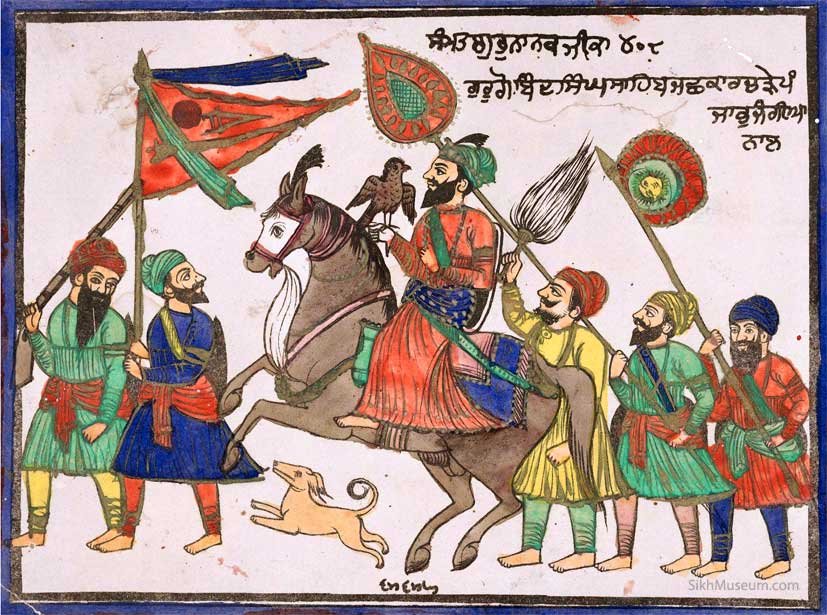 ਸੰਮਤ ਸ੍ਰੀ ਗੁਰੂ ਨਾਨਕ ਜੀ ਕਾ ੪੦੮
ਗੁਰੂ ਗੋਬਿੰਦ ਸਿੰਘ ਸਾਹਿਬ ਚੜੇ ਪੰ
ਜਾ ਭੁਜੰਗੀਆ
ਨਾਲ
SikhMuseum.com